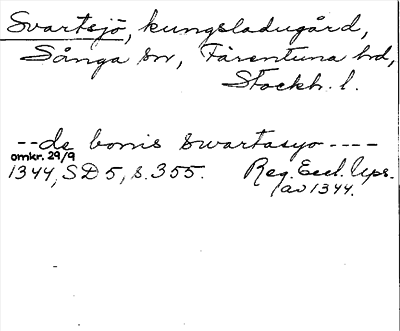 Svartsjö, kungsladugård,
Sånga sn, Färentuna hd,
Stockh. l.
-- de bonis swartasyo ----
omkr. 29/9
1344, SD 5, s. 355. Reg. Eccl. Ups.
av 1344.